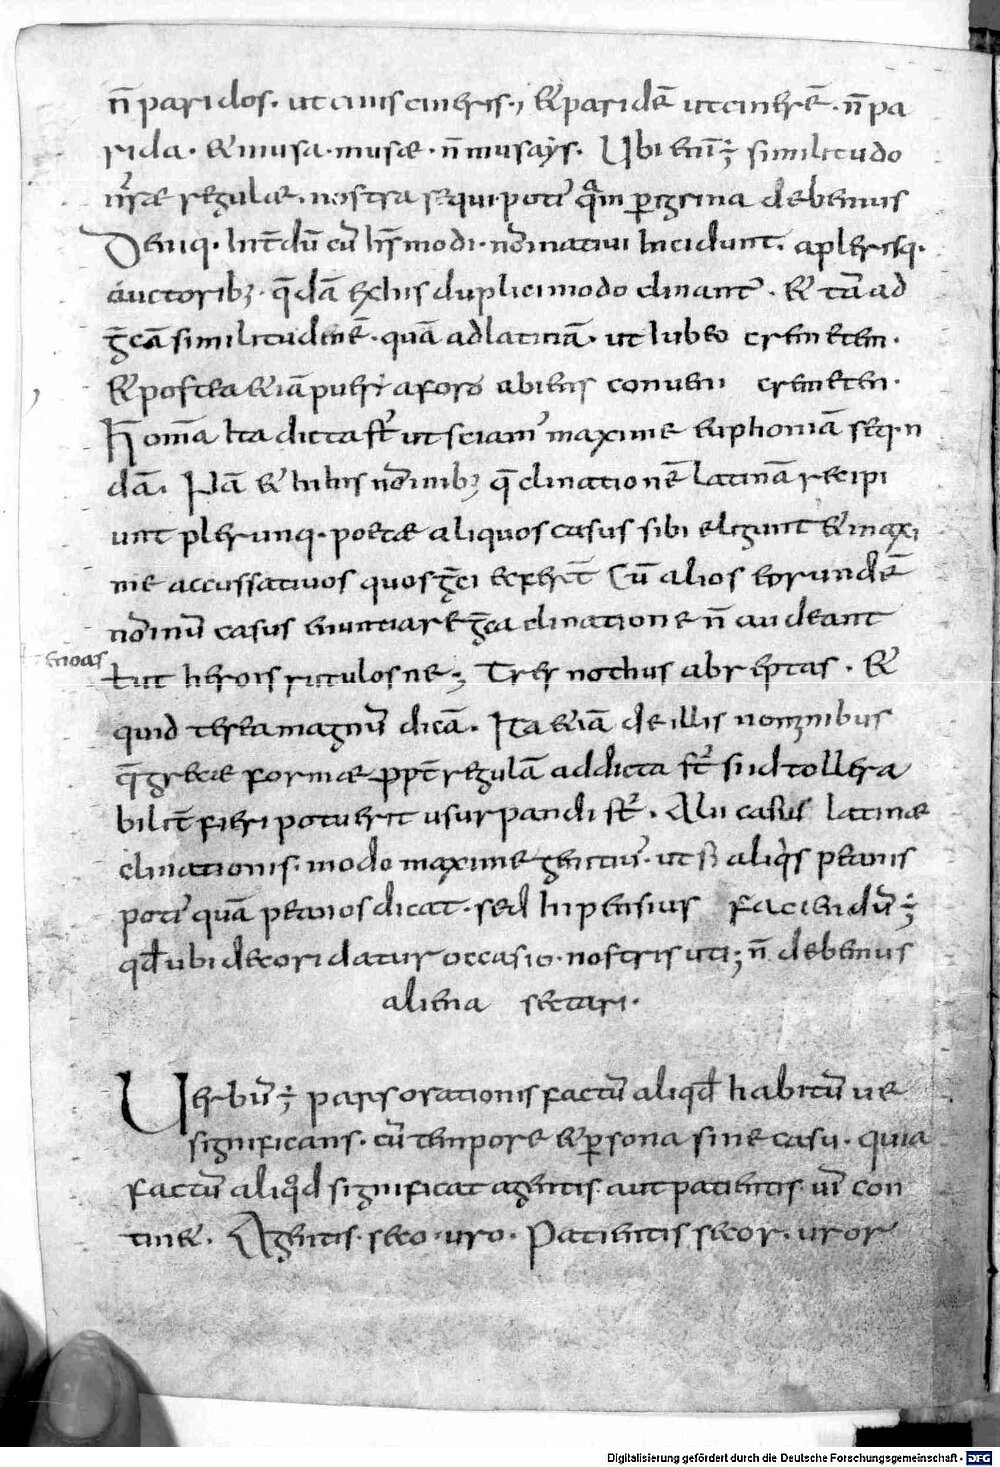 n̄ paridos. ut cinis cineris.; & paridē ut cinerē. n̄ pa
rida. & musa. musae. n̄ musays. Ubi enī ÷ similitudo
nr̄ae regulae. nostra sequi potiꝰ quā peregrina debemus
Deniq. Int̄dū cū hꝰmodi. nōminativi incidunt. a plerisq.
auctorib; q̄dā ex his duplici modo clinantꝰ. & tā ad
ḡcā similitudinē. quā ad latinā. ut lubeo cremetem.
& postea &iā pueri a foro abiens conveni cremeten.
H̄ om̄a ita dicta st̄ ut sciamꝰ maxime euphoniā seqn
dā. Nā & in his nōminib; q̄ clinationē latinā recipi
unt plerunq. poetae aliquos casus sibi eligunt & maxi
me accussativos quos ḡci ecferēt Cū alios eorundē
nōminū casus enuntiare ḡca clinatione n̄ audeant
enoas
Ł ut herois ritulos ne; Trer nothus abreptas. &
quid tereamagnū dicā. Ita &iā de illis nominibus
q̄ grecae formae ppt̄ regulā addicta st̄ si id tollera
bilit̄ fieri potuerit usurpandi st̄. Alii casus latinae
clinationis. modo maxime genitiuꝰ. ut si aliqis peanis
potiꝰ quā peanos dicat. sed inpensius faciendū ÷
qd̄ ubi decori datur occasio. nostris uti; n̄ debemus
aliena sectari.
Uerbū ÷ pars orationis factū aliqd̄ habitū ve
significans. cū tempore & persona sine casu. quia
factū aliqd̄ significat agentis. aut patientis. vim con
tin&. Agentis. seco. uro. Patientis secor. uror
Digitalisierung gefördert durch die Deutsche Forschungsgemeinschaft - DFG